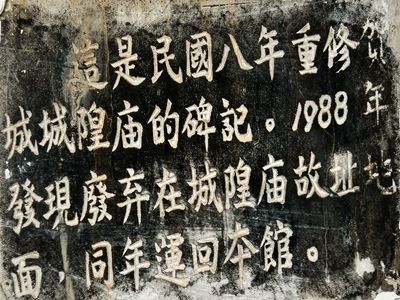 這是民國八年重修賀
城城隍庙的碑記。1988年
發現廢弃在城隍庙故址地
面，同年運回本館。